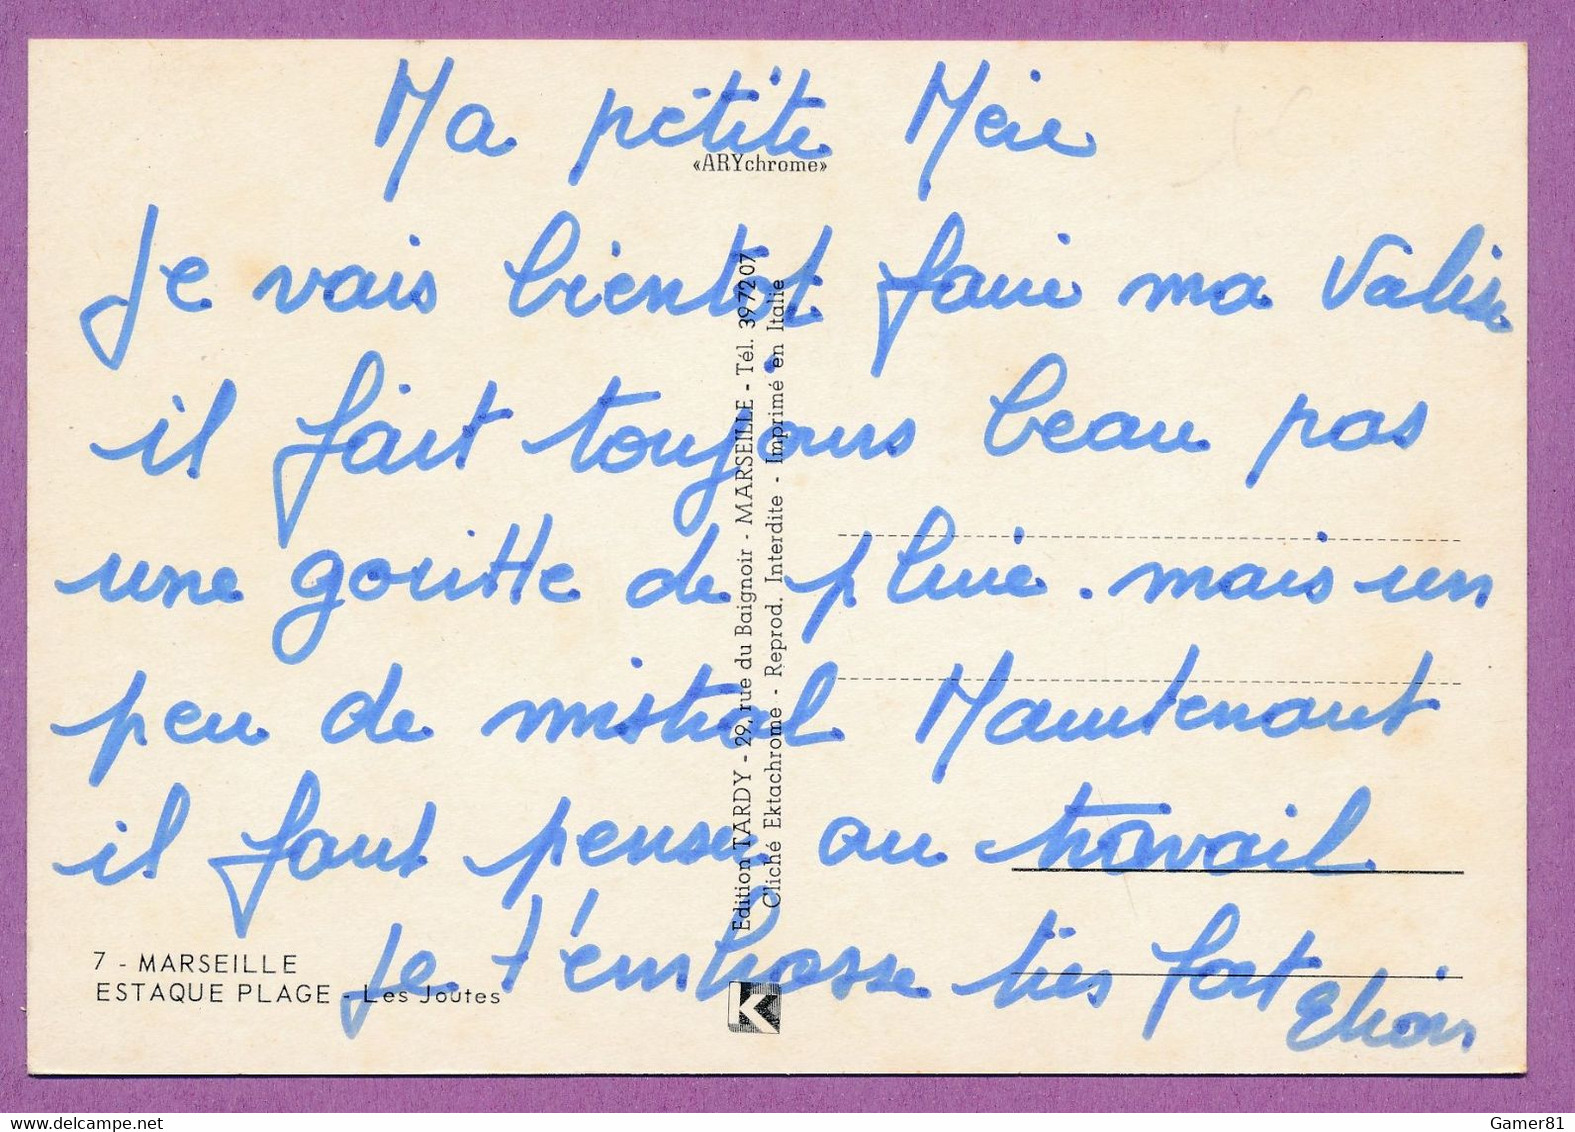 Ma pétite Mère
«ARYchrome»
Je vais bientot faire ma valise
il fait toujours beau pas
une goutte de pluie. mais un
peu de mistral Maintenant
il faut penser au travail
Je t'embrasse très fort
Edition TARDY - 29, rue du Baignoir - MARSEILLE - Tél. 39.72.07
Cliché Ektachrome - Reprod. Interdite - Imprimé en Italie
7 - MARSEILLE
ESTAQUE PLAGE - Les Joutes
K
Gamer81